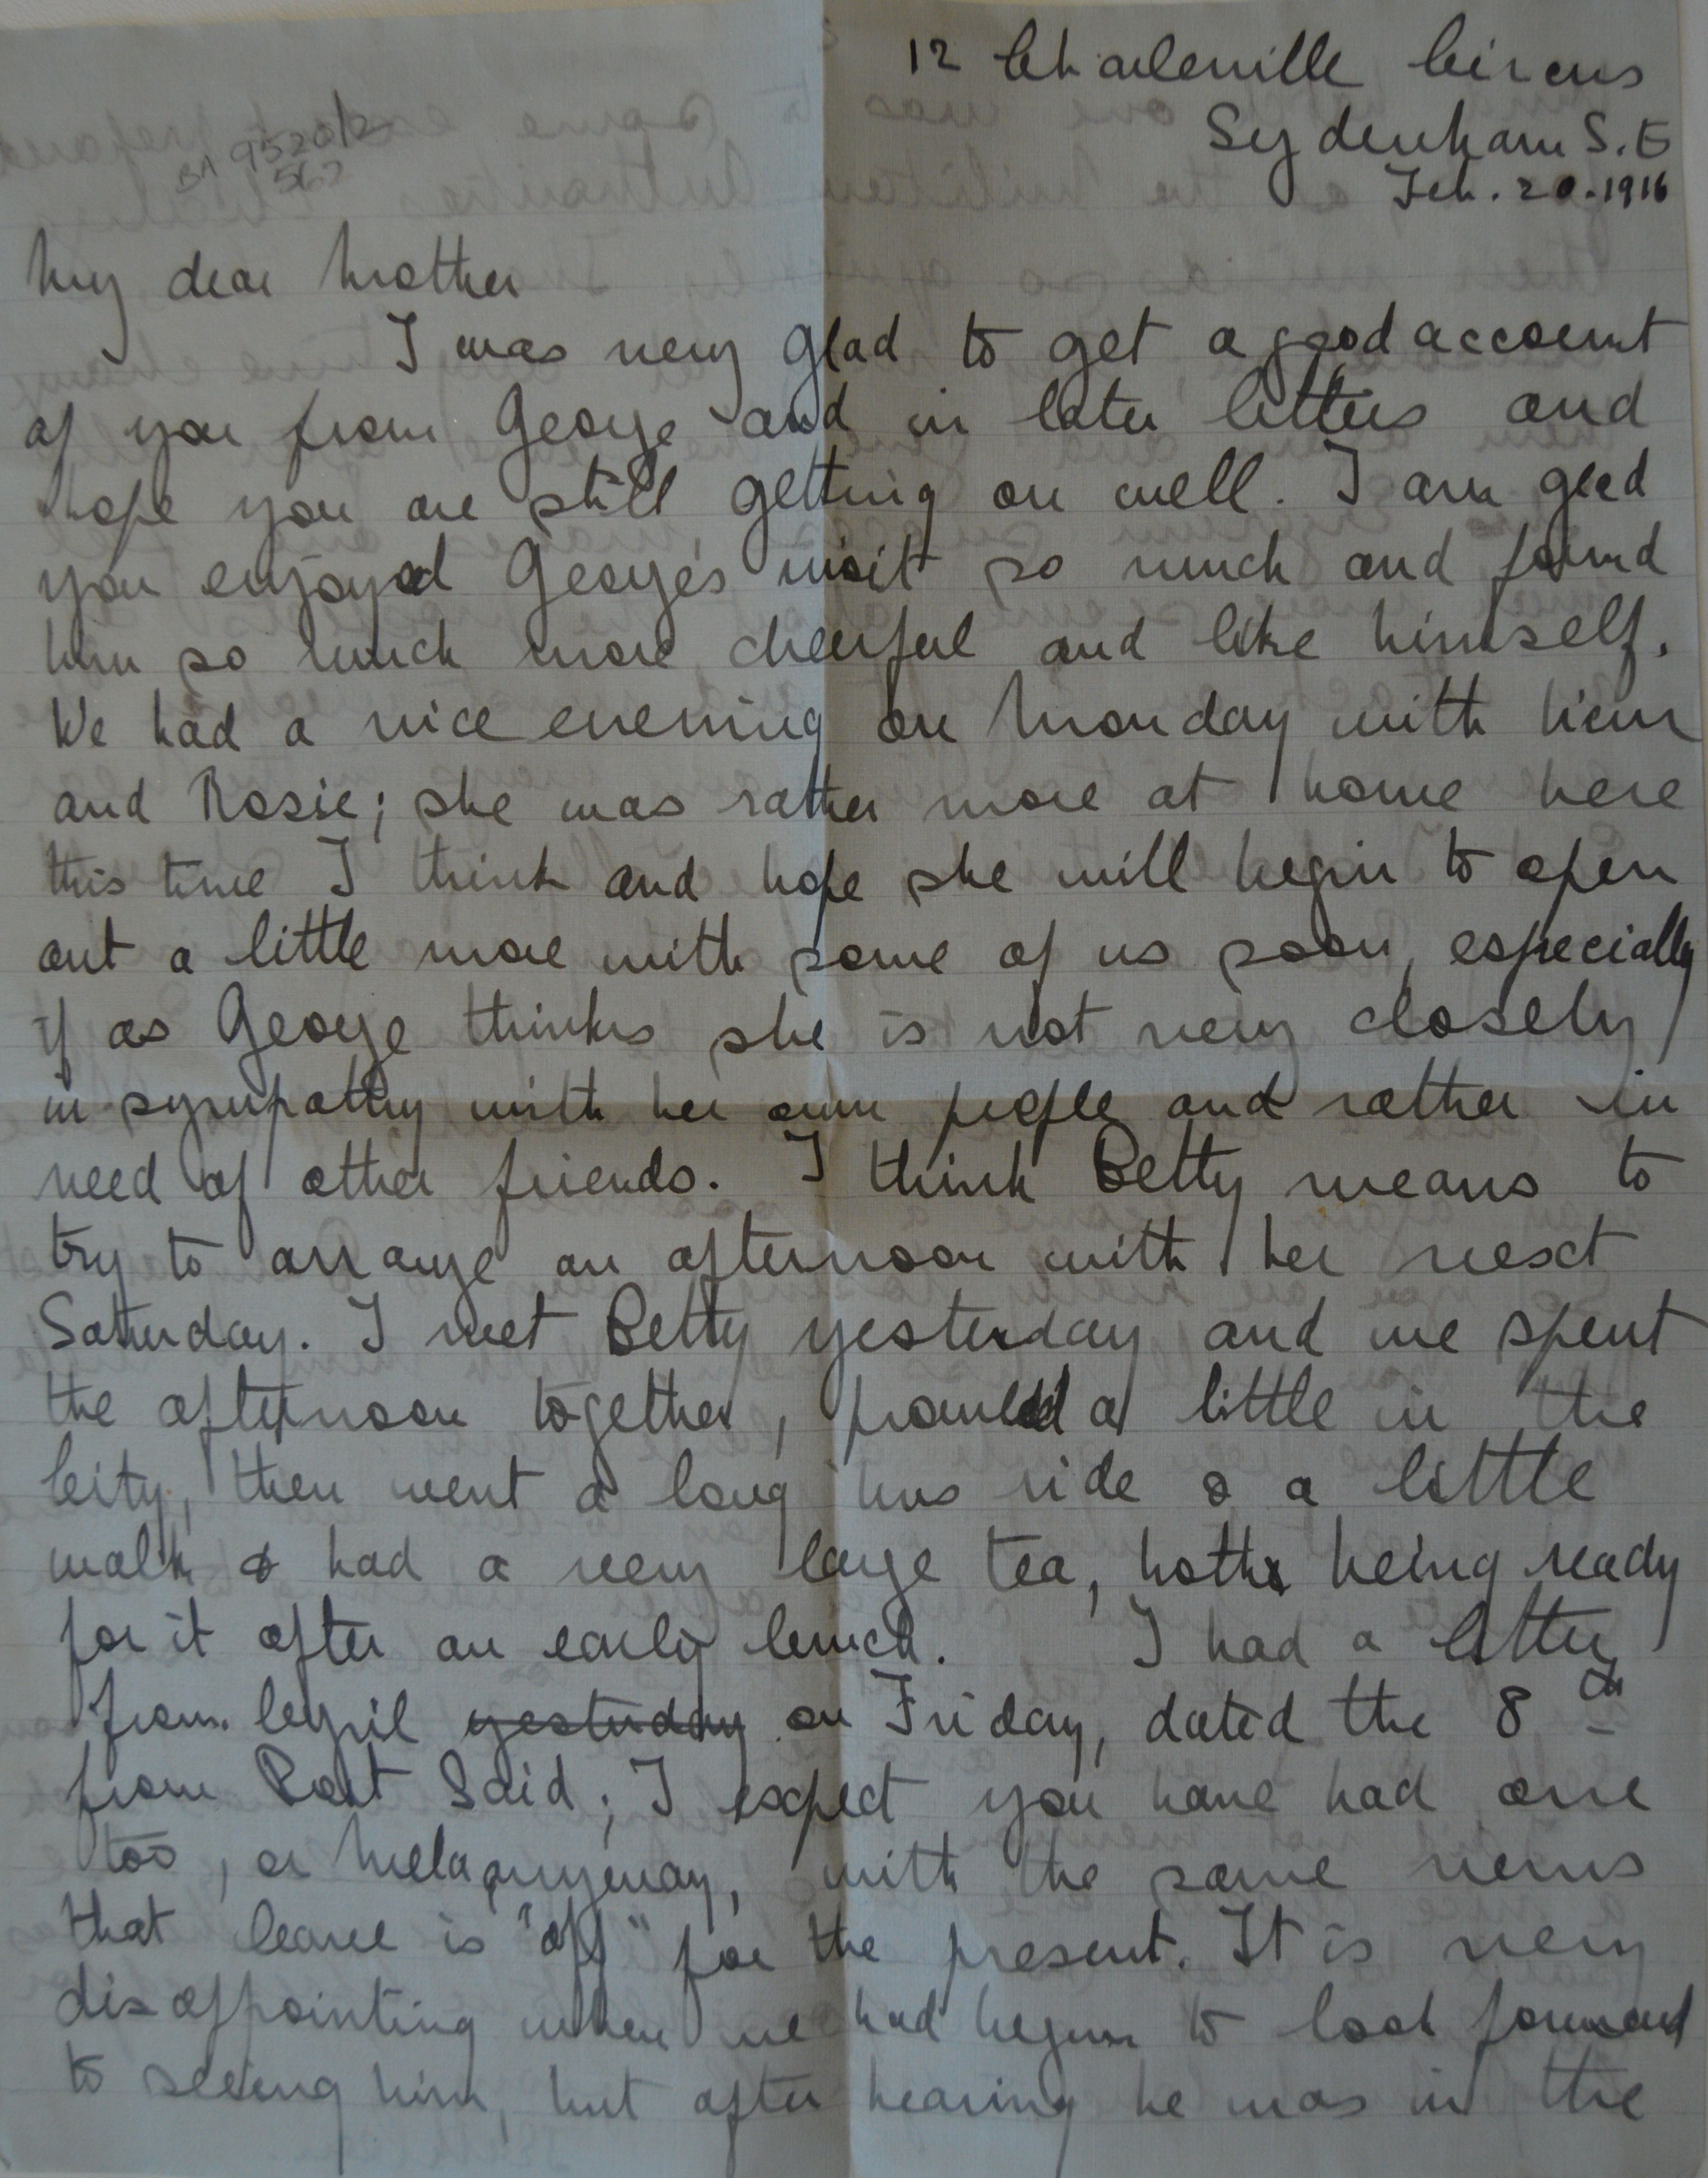 12 Charleville Circus
Sydenham S.E
Feb. 20. 1916
BA 9520/2
562
My dear Mother
I was very glad to get a good account
of you from George and in later letters and
hope you are still getting on well. I am glad
you enjoyed George's visit so much and found
him so much more cheerful and like himself.
We had a nice evening on Monday with him
and Rosie; she was rather more at home here
this time I think and hope she will begin to open
out a little more with some of us soon, especially
if as George thinks she is not very closely
in sympathy with her own people and rather in
need of other friends. I think Betty means to
try to arrange an afternoon with her next
Saturday. I met Betty yesterday and we spent
the afternoon together, prowled a little in the
City, then went a long bus ride & a little
walk & had a very large tea, both being ready
for it after an early lunch. I had a letter
from Cyril yesterday on Friday, dated the 8th
from Port Said; I expect you have had one
too, or Mela anyway, with the same news
that leave is "off" for the present. It is very
disappointing when we had begun to look forward
to seeing him, but after hearing he was in the